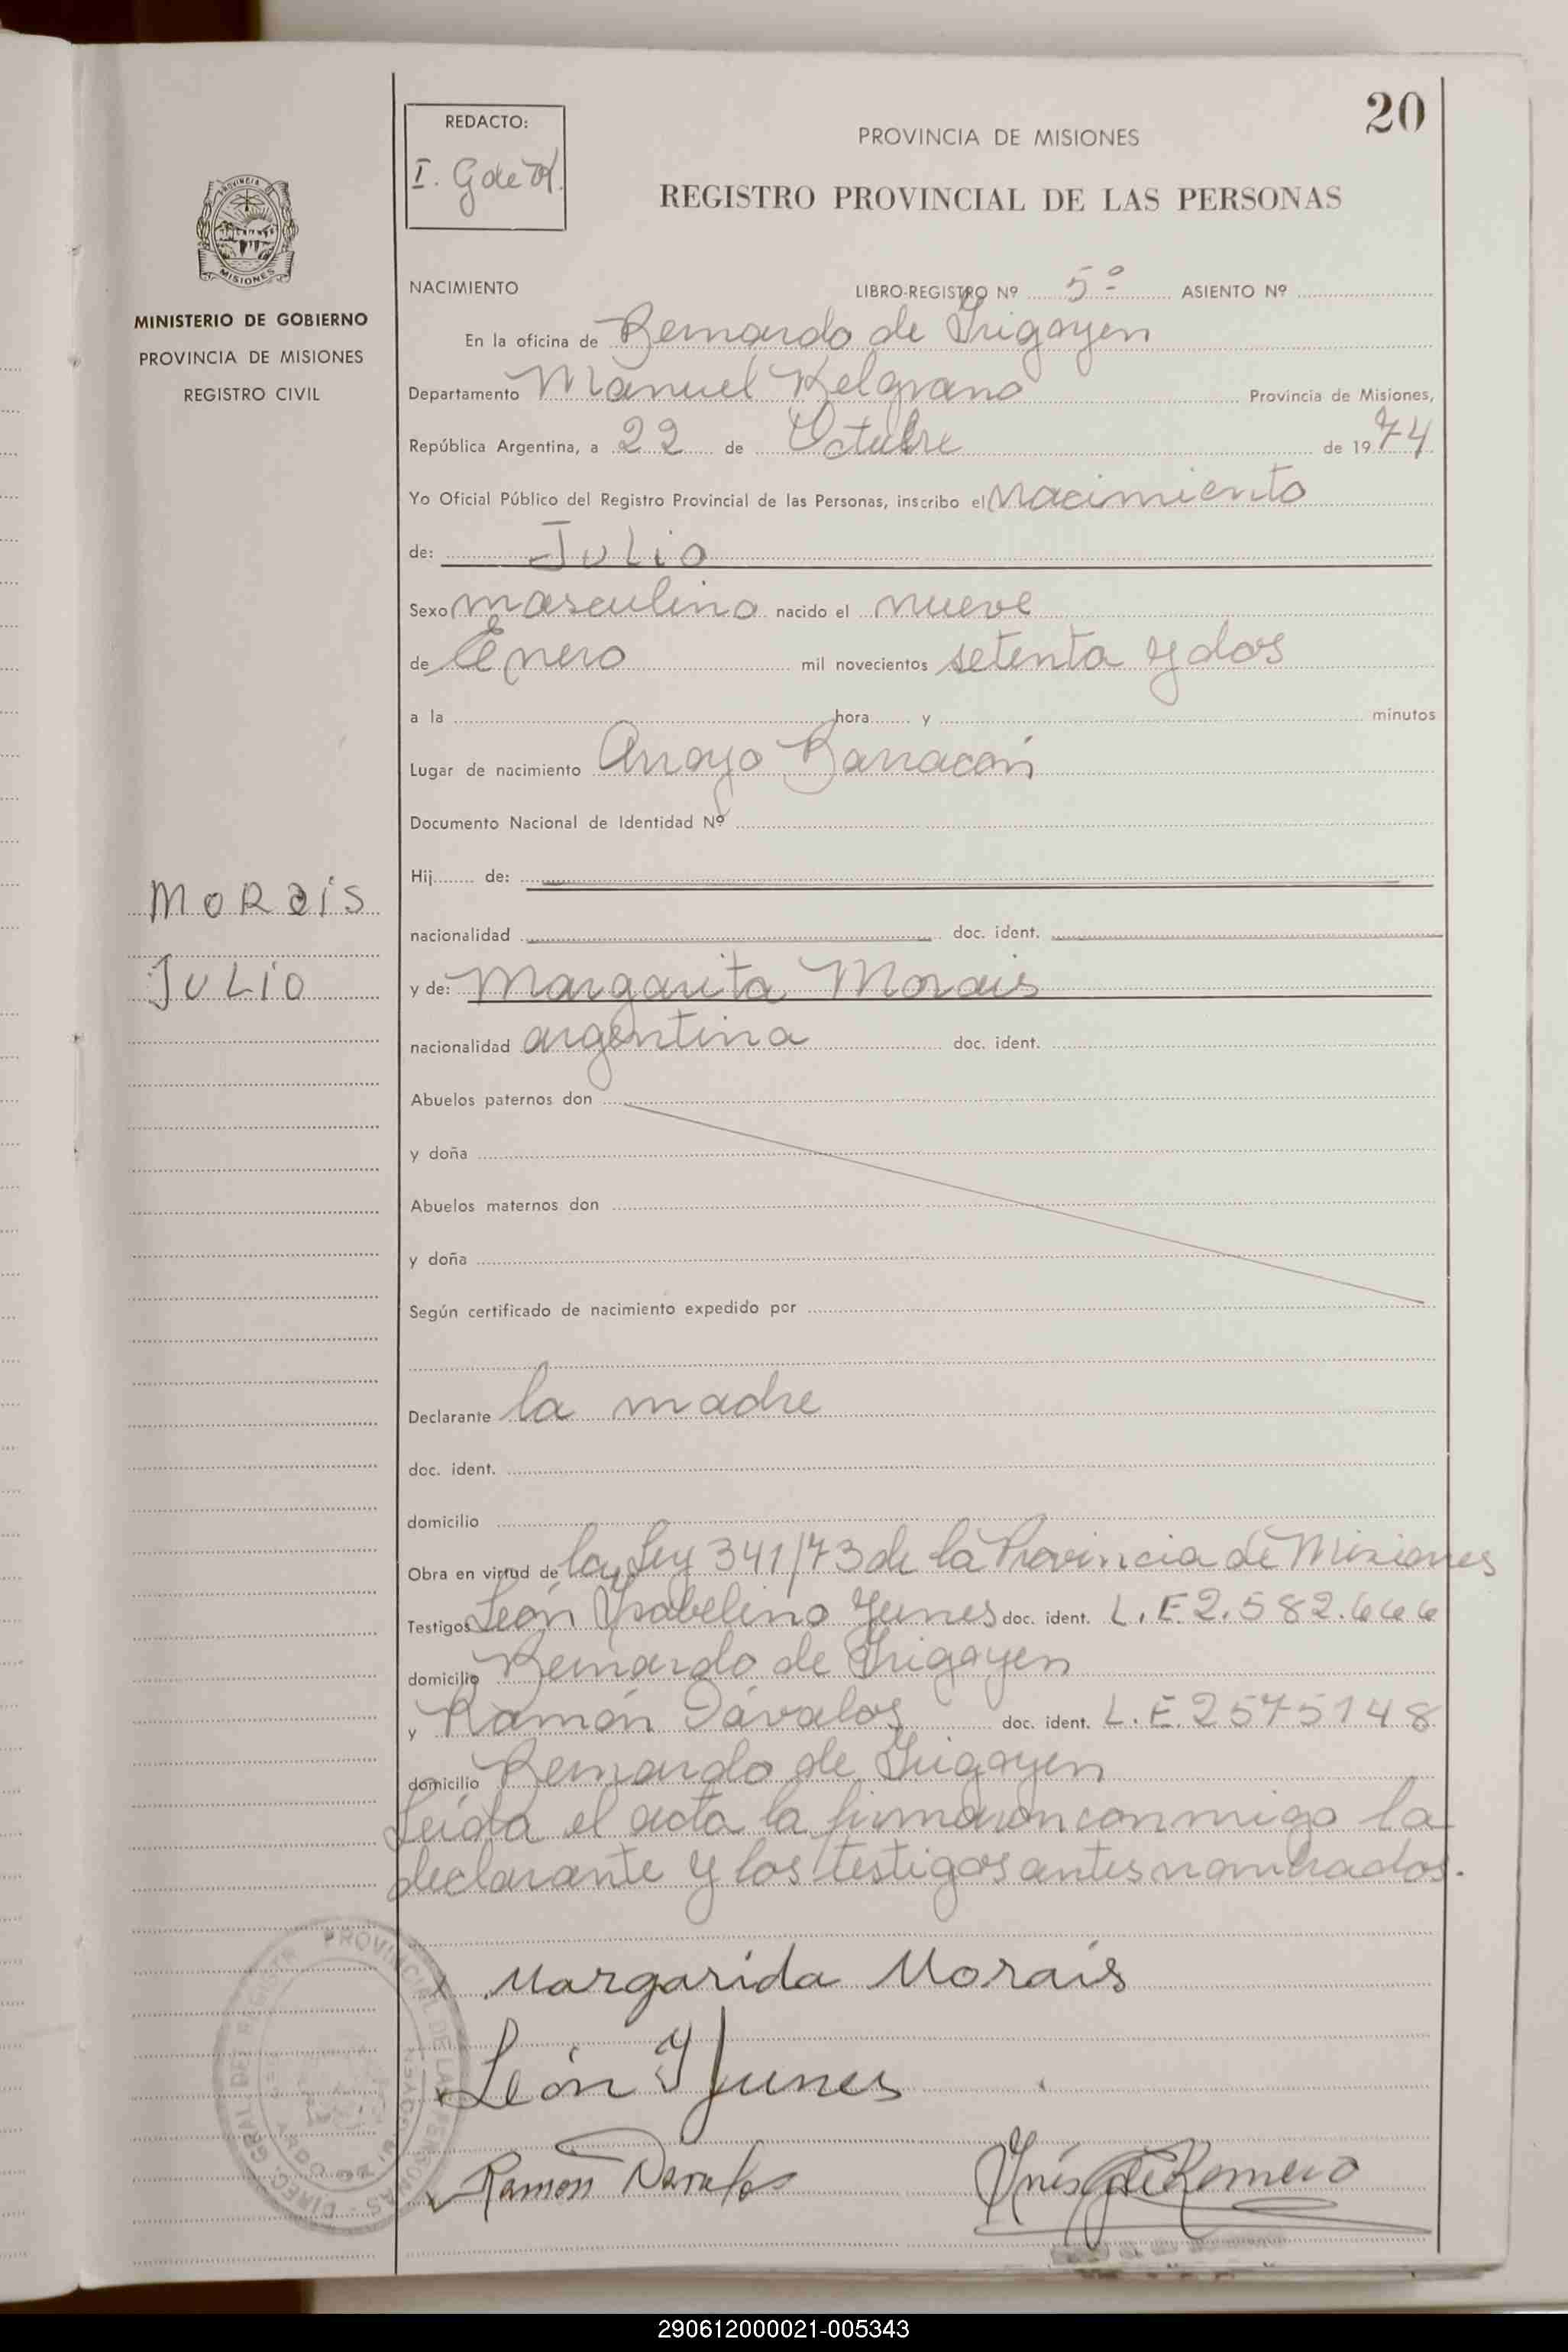 20
REDACTO:
I. G de R.
PROVINCIA DE MISIONES
REGISTRO PROVINCIAL DE LAS PERSONAS
PROVINCIA DE
MISIONES
MINISTERIO DE GOBIERNO
PROVINCIA DE MISIONES
REGISTRO CIVIL
NACIMIENTO LIBRO-REGISTRO Nº 5º ASIENTO Nº
En la oficina de Bernardo de Irigoyen
Departamento Manuel Belgrano Provincia de Misiones,
República Argentina, a 22 de Octubre de 1974
Yo Oficial Público del Registro Provincial de las Personas, inscribo el Nacimiento
de: Julio
Sexo masculino nacido el nueve
de Enero mil novecientos setenta y dos
a la hora y minutos
Lugar de nacimiento Arroyo Barracón
Documento Nacional de Identidad Nº
Hij de:
MORAIS
nacionalidad doc. ident.
JULIO
y de: Margarita Morais
nacionalidad argentina doc. ident.
Abuelos paternos don
y doña
Abuelos maternos don
y doña
Según certificado de nacimiento expedido por
Declarante la madre
doc. ident.
domicilio
Obra en virtud de la Ley 341/73 de la Provincia de Misiones
Testigos León Isabelino Yunes doc. ident. L.E 2.582.666
domicilio Bernardo de Irigoyen
y Ramón Dávalos doc. ident. L.E. 2575148
domicilio Bernardo de Irigoyen
Leída el acta la firmaron conmigo la
declarante y los testigos antes nombrados.
Margarida Morais
León Y Yunes
Ramón Davalos Inés G de Romero
DIREC. GRAL. DEL REGISTR PROVINCIAL DE LAS PERSONAS
290612000021-005343